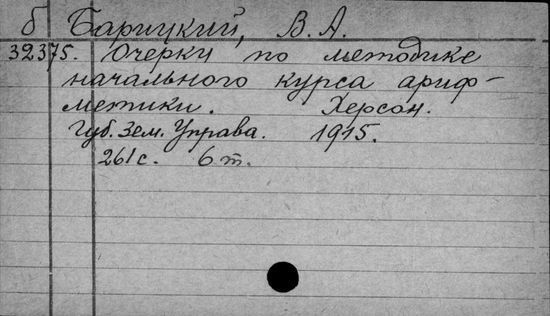 б Барицкий, В. А.
32375. Очерки по методике
начального курса ариф-
метики. Херсон.
Губ. Зем. Управа. 1915.
261 с. 6 т.